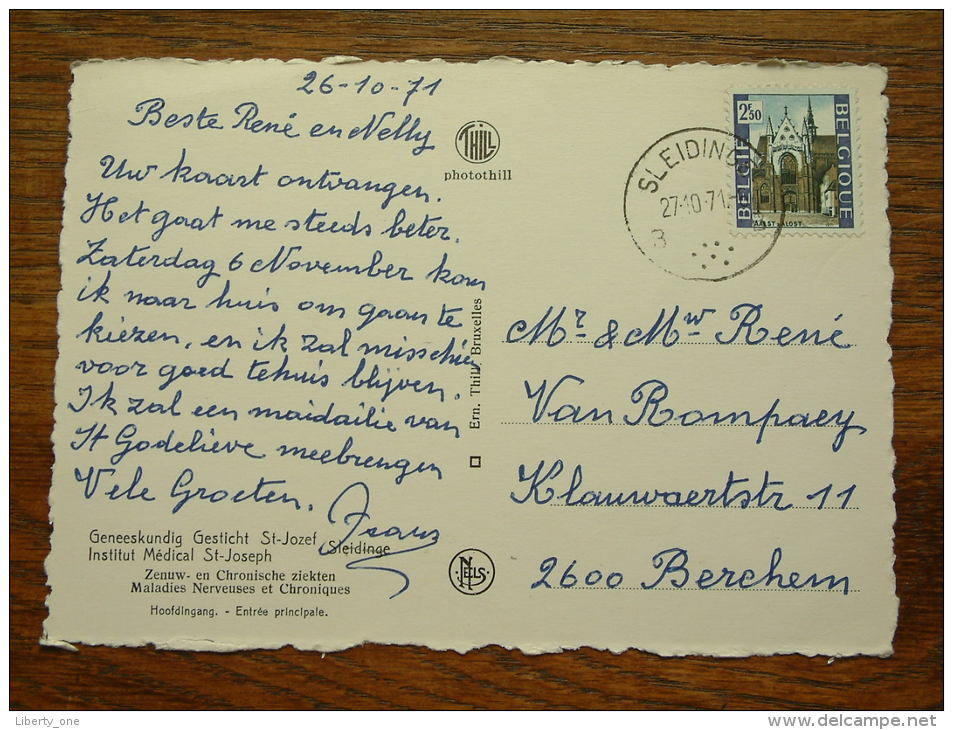 26-10-71
Beste René en Nelly
Uw kaart ontvangen.
Het gaat me steeds beter.
Zaterdag 6 November kom
ik naar huis om gaan te
kiezen, en ik zal misschien
voor goed tehuis blijven.
Ik zal een maidailie van
St Godelieve meebrengen
Vele Groeten.
Frans
Geneeskundig Gesticht St-Jozef
Institut Médical St-Joseph
Sleidinge
Zenuw- en Chronische ziekten
Maladies Nerveuses et Chroniques
Hoofdingang. - Entrée principale.
THILL
photothill
Ern. Thill, Bruxelles
NELS
SLEIDINGE
27-10-71
3
2F50
BELGIE
BELGIQUE
AALST-ALOST
Mr & Mw René
Van Rompaey
Klauwaertstr 11
2600 Berchem
Liberty_one
delcampe.net